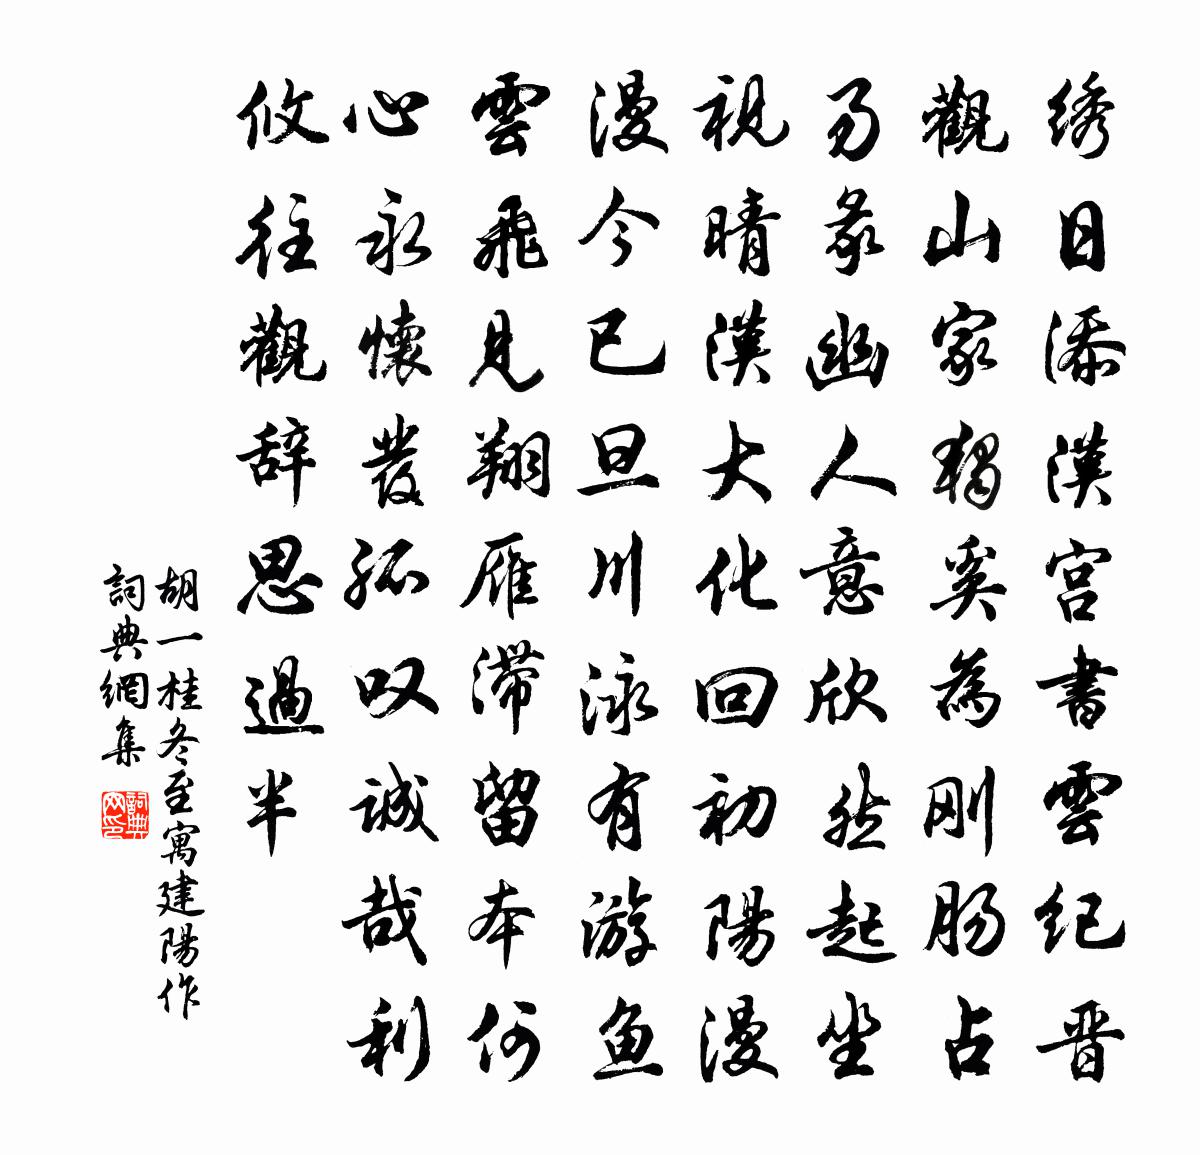 綉日添漢宮書雲紀晋
觀山家獨奚為剛腸占
易彖幽人意欣然起坐
視晴漢大化回初陽漫
漫今已旦川泳有游魚
雲飛見翔雁滯留本何
心永懷發孤叹誠哉利
攸往觀辞思過半
胡一桂冬至寓建陽作
詞典網集
詞典网印